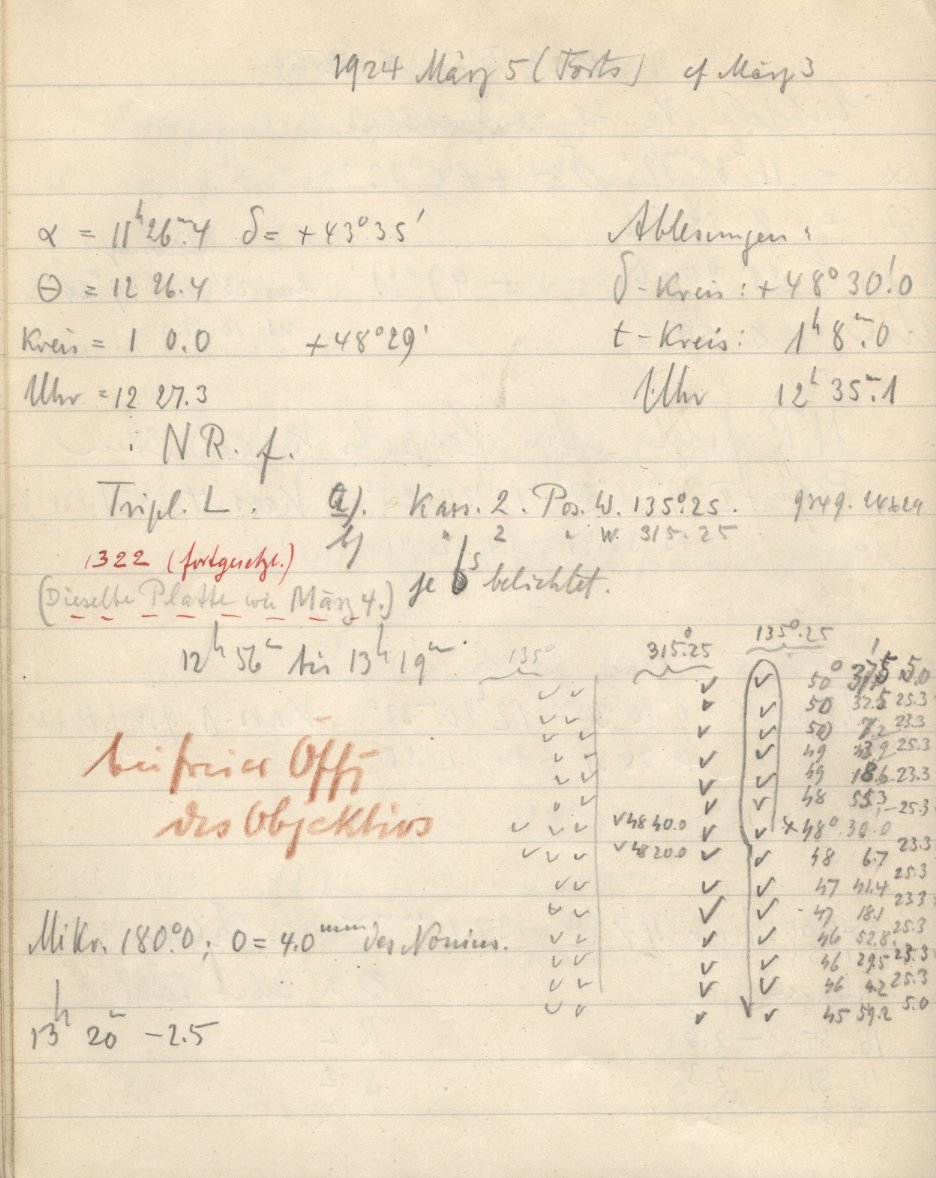 1924 März 5 (Forts) cf März 3
α = 11ʰ 26ᵐ.4 δ = +43° 35′ Ablesungen:
Θ = 12 26.4 δ-Kreis: +48° 30′.0
Kreis = 1 0.0 +48° 29′ t-Kreis: 1ʰ 8ᵐ.0
Uhr = 12 27.3 Uhr 12ʰ 35ᵐ.1
NR. f.
Tripl. L. a). Kass. 2. Pos. W. 135°.25.
b) " 2 " W. 315.25
1322 (fortgesetzt.)
(Dieselbe Platte wie März 4.) je 6ˢ belichtet.
12ʰ 56ᵐ bis 13ʰ 19ᵐ 135° 315°.25 135°.25
✓ ✓ ✓ ✓ 50° 5.0
✓ ✓ ✓ ✓ 50 32.5 25.3
✓ ✓ ✓ ✓ 50 7.2 23.3
bei freier Öff.
✓ ✓ ✓ ✓ 49 43.9 25.3
✓ ✓ ✓ ✓ 49 18.6 23.3
✓ ✓ ✓ ✓ 48 55.3 25.3
des Objektivs
✓ ✓ ✓ ✓ 48 40.0 ✓ ✓ +48° 30.0
✓ ✓ ✓ ✓ 48 20.0 ✓ ✓ 48 6.7 23.3
✓ ✓ ✓ ✓ 47 41.4 25.3
✓ ✓ ✓ ✓ 47 18.1 23.3
Mikr. 180°.0; 0 = 4.0ᵐᵐ des Nonius.
✓ ✓ ✓ ✓ 46 52.8 25.3
✓ ✓ ✓ ✓ 46 29.5 23.3
✓ ✓ ✓ ✓ 46 4.2 25.3
✓ ✓ ✓ ✓ 45 59.2 5.0
13ʰ 20ᵐ −2.5